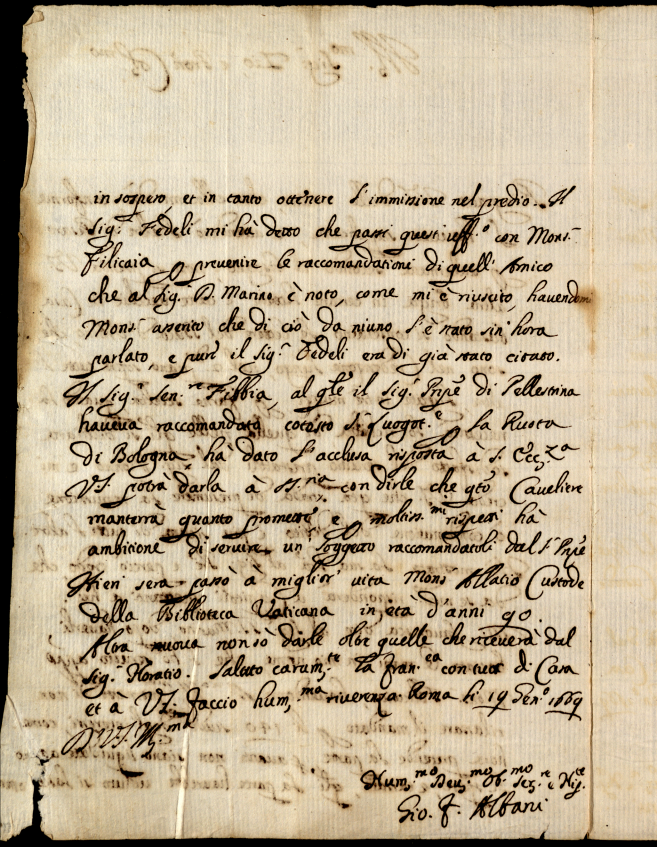 in sospeso, et in tanto ottenere l'immissione nel predio. Il
Sig.r Fedeli mi hà detto che passi questi uff.o con Mons.r
Filicaia p prevenire le raccomandationi di quell'Amico
che al Sig.r D. Marino è noto, come mi è riuscito, havendomi
Mons.r asserito che di ciò da niuno l'è stato sin'hora
parlato, e pure il Sig.r Fedeli era di già stato citato.
Il Sig.r Sen.re Fibbia, al qle il Sig.r Pripe di Pellestrina
haveva raccomandato cotesto S.r Luogot.e p la Ruota
di Bologna hà dato l'acclusa risposta à S. Ecc.za
VS. potrà darla à con dirle che qto Cavaliere
manterrà quanto promette, e p moltiss.mi rispetti hà
ambitione di servire un soggetto raccomandatoli dal S.r Pripe
Hieri sera passò à miglior vita Mons.r Allacio Custode
della Biblioteca Vaticana in età d'anni 90.
Altra nuova non sò darle oltre quelle che riceverà dal
Sig.r Horatio. Saluto carum.te la Fran.ca con tutti di Casa
et à VS. faccio hum.ma riverenza. Roma li 19 Gen.o 1669
D VS. M ma
Hum.mo Dev.mo Ob.mo Ser.re e Nip.te
Gio. F. Albani